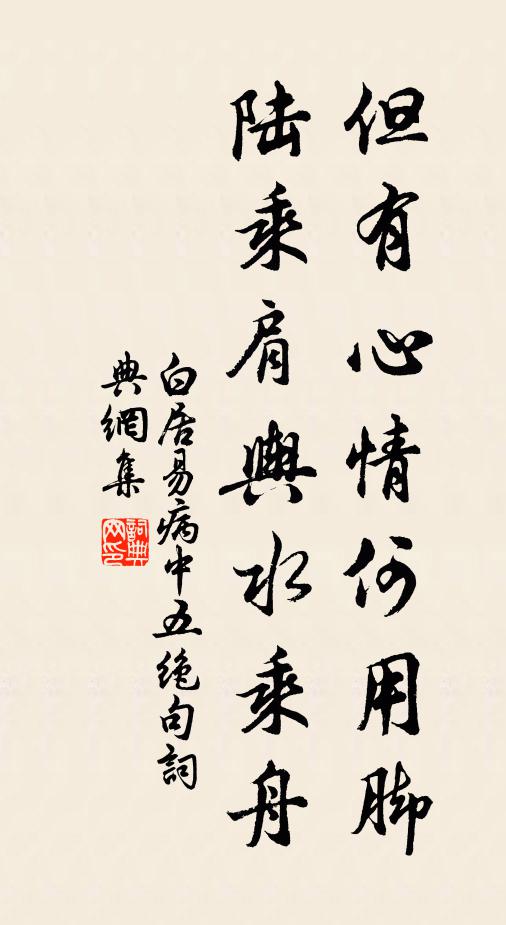 但有心情何用脚
陆乘肩舆水乘舟
白居易病中五绝句詞
典網集
詞典网印